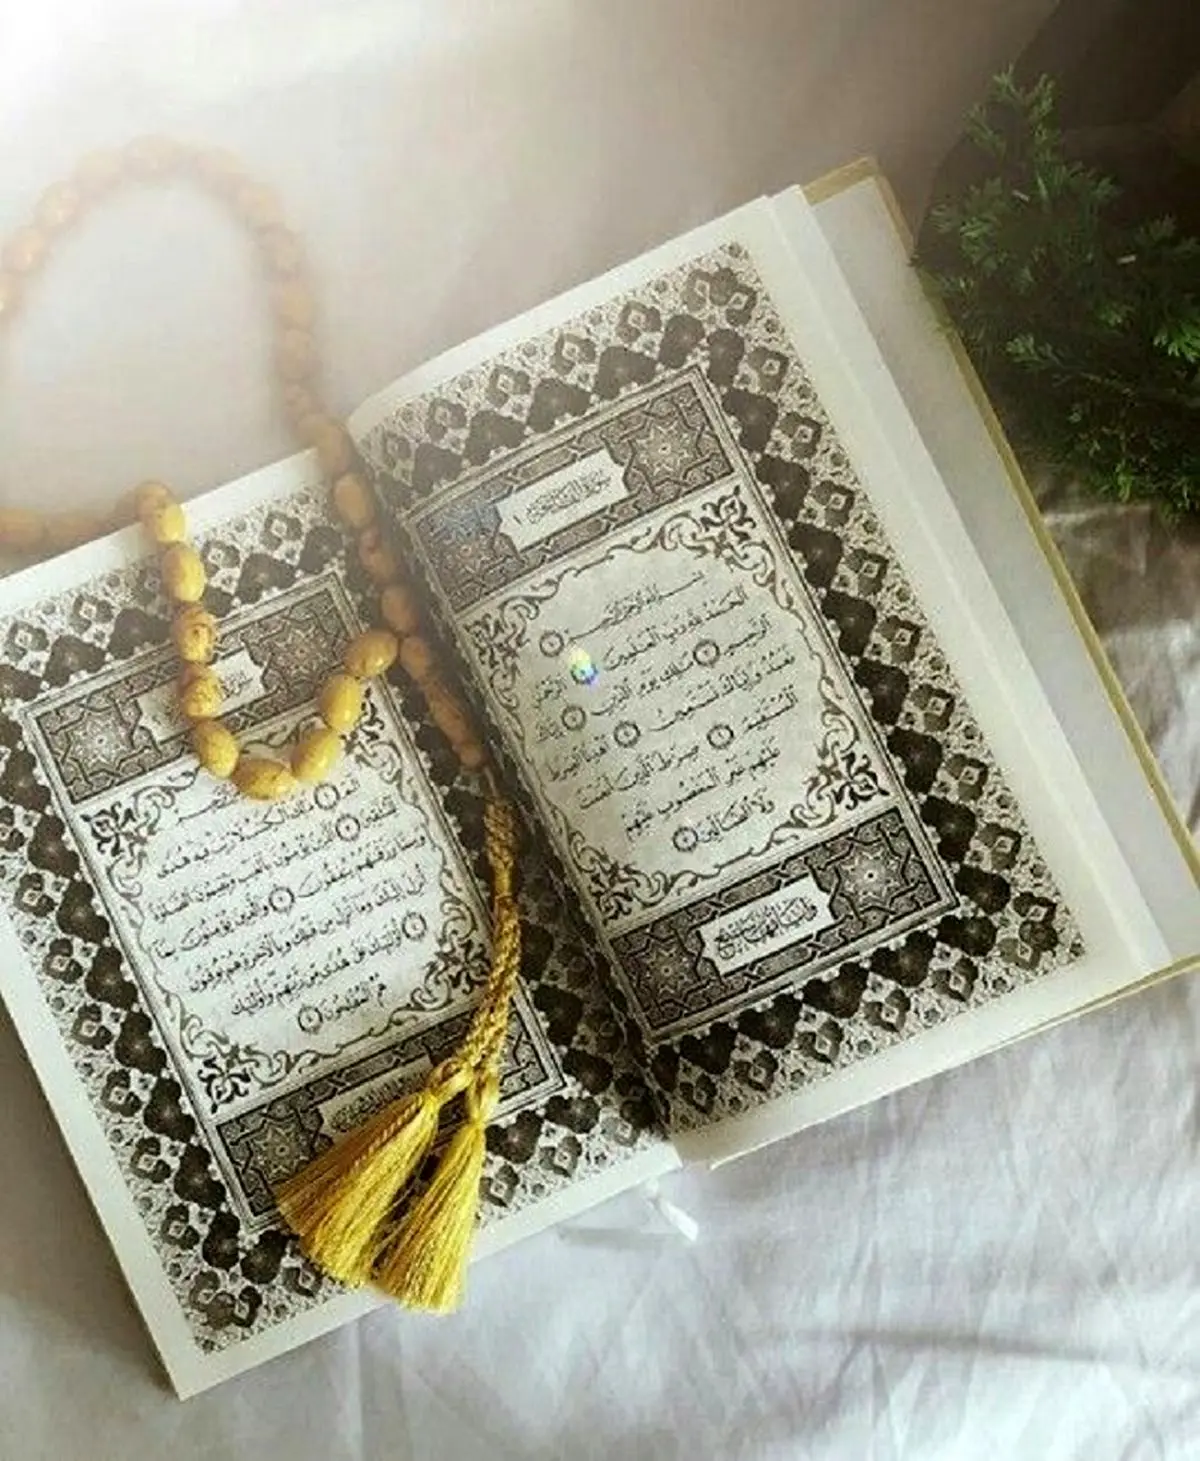 بِسْمِ ٱللَّهِ ٱلرَّحْمَٰنِ ٱلرَّحِيمِ ١
ٱلْحَمْدُ لِلَّهِ رَبِّ ٱلْعَٰلَمِينَ ٢ ٱلرَّحْمَٰنِ
ٱلرَّحِيمِ ٣ مَٰلِكِ يَوْمِ ٱلدِّينِ ٤ إِيَّاكَ
نَعْبُدُ وَإِيَّاكَ نَسْتَعِينُ ٥ ٱهْدِنَا ٱلصِّرَٰطَ
ٱلْمُسْتَقِيمَ ٦ صِرَٰطَ ٱلَّذِينَ أَنْعَمْتَ
عَلَيْهِمْ غَيْرِ ٱلْمَغْضُوبِ عَلَيْهِمْ
وَلَا ٱلضَّآلِّينَ ٧
الٓمٓ ١ ذَٰلِكَ ٱلْكِتَٰبُ لَا رَيْبَ فِيهِ هُدًى
لِّلْمُتَّقِينَ ٢ ٱلَّذِينَ يُؤْمِنُونَ بِٱلْغَيْبِ وَيُقِيمُونَ ٱلصَّلَوٰةَ
وَمِمَّا رَزَقْنَٰهُمْ يُنفِقُونَ ٣ وَٱلَّذِينَ يُؤْمِنُونَ بِمَآ
أُنزِلَ إِلَيْكَ وَمَآ أُنزِلَ مِن قَبْلِكَ وَبِٱلْءَاخِرَةِ هُمْ يُوقِنُونَ
٤ أُو۟لَٰٓئِكَ عَلَىٰ هُدًى مِّن رَّبِّهِمْ وَأُو۟لَٰٓئِكَ
هُمُ ٱلْمُفْلِحُونَ ٥